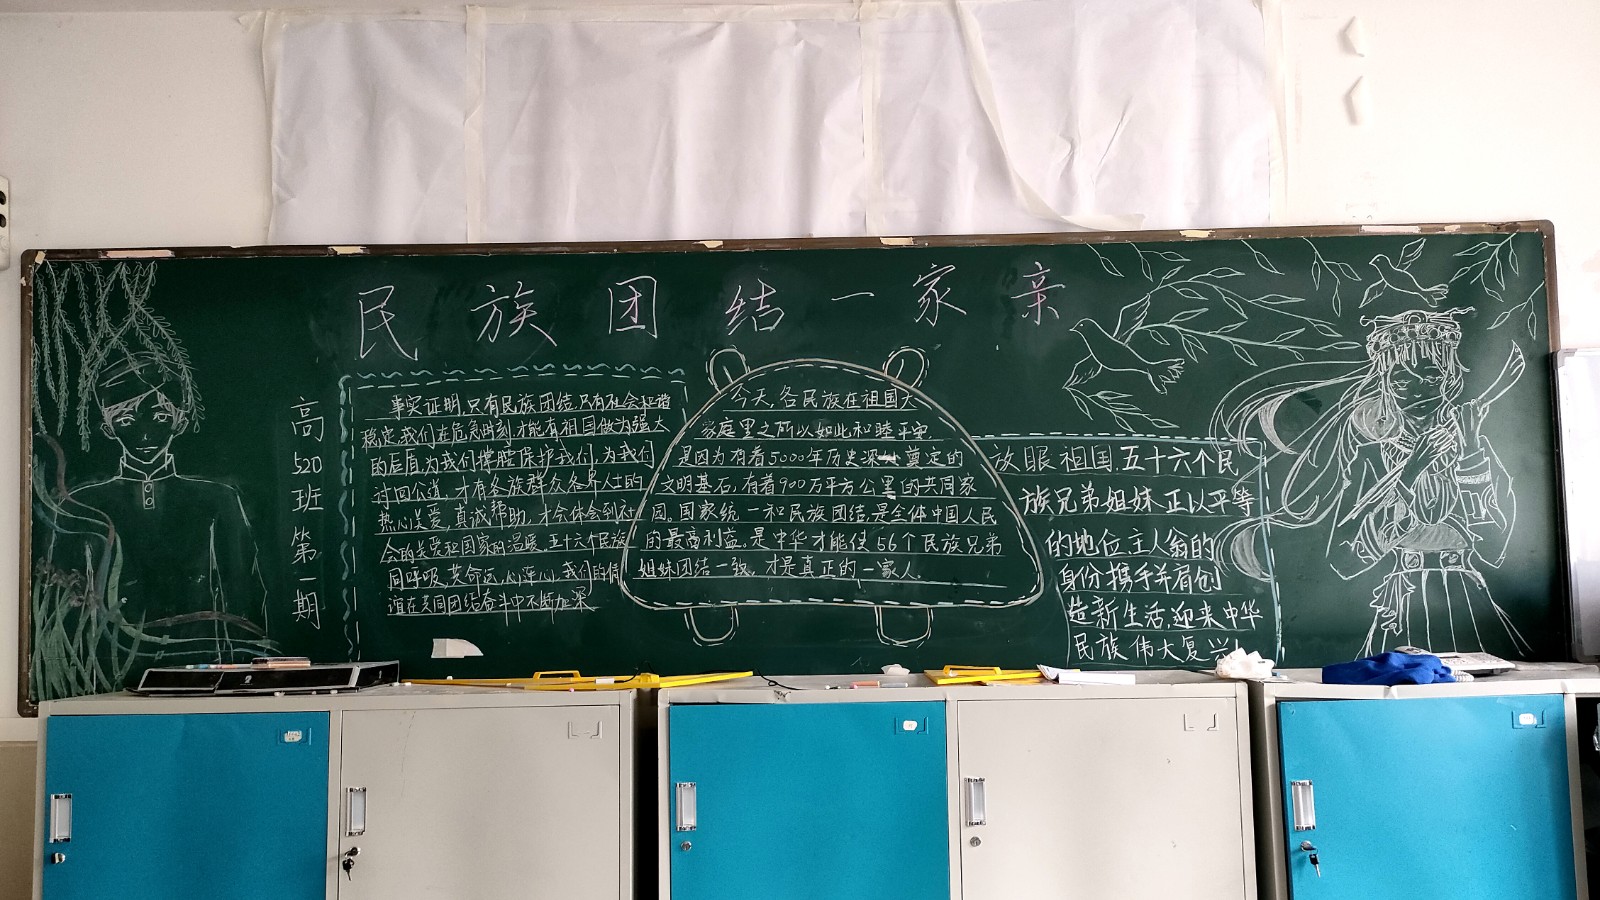 民族团结一家亲
高520班第一期
事实证明,只有民族团结,只有社会和谐
稳定,我们在危急时刻才能有祖国做为强大
的后盾,为我们撑腔保护我们,为我们
讨回公道,才有各族群众各界人士的
热心关爱,真诚帮助,才会体会到社
会的关爱和国家的温暖,五十六个民族
同呼吸,共命运,心连心,我们的情
谊在共同团结奋斗中不断加深
今天,各民族在祖国大
家庭里之所以如此和睦平安,
是因为有着5000年历史深处奠定的
文明基石,有着900万平方公里的共同家
园。国家统一和民族团结,是全体中国人民
的最高利益。是中华才能使56个民族兄弟
姐妹团结一致,才是真正的一家人.
放眼祖国,五十六个民
族兄弟姐妹正以平等
的地位主人翁的
身份携手并肩创
造新生活,迎来中华
民族伟大复兴!